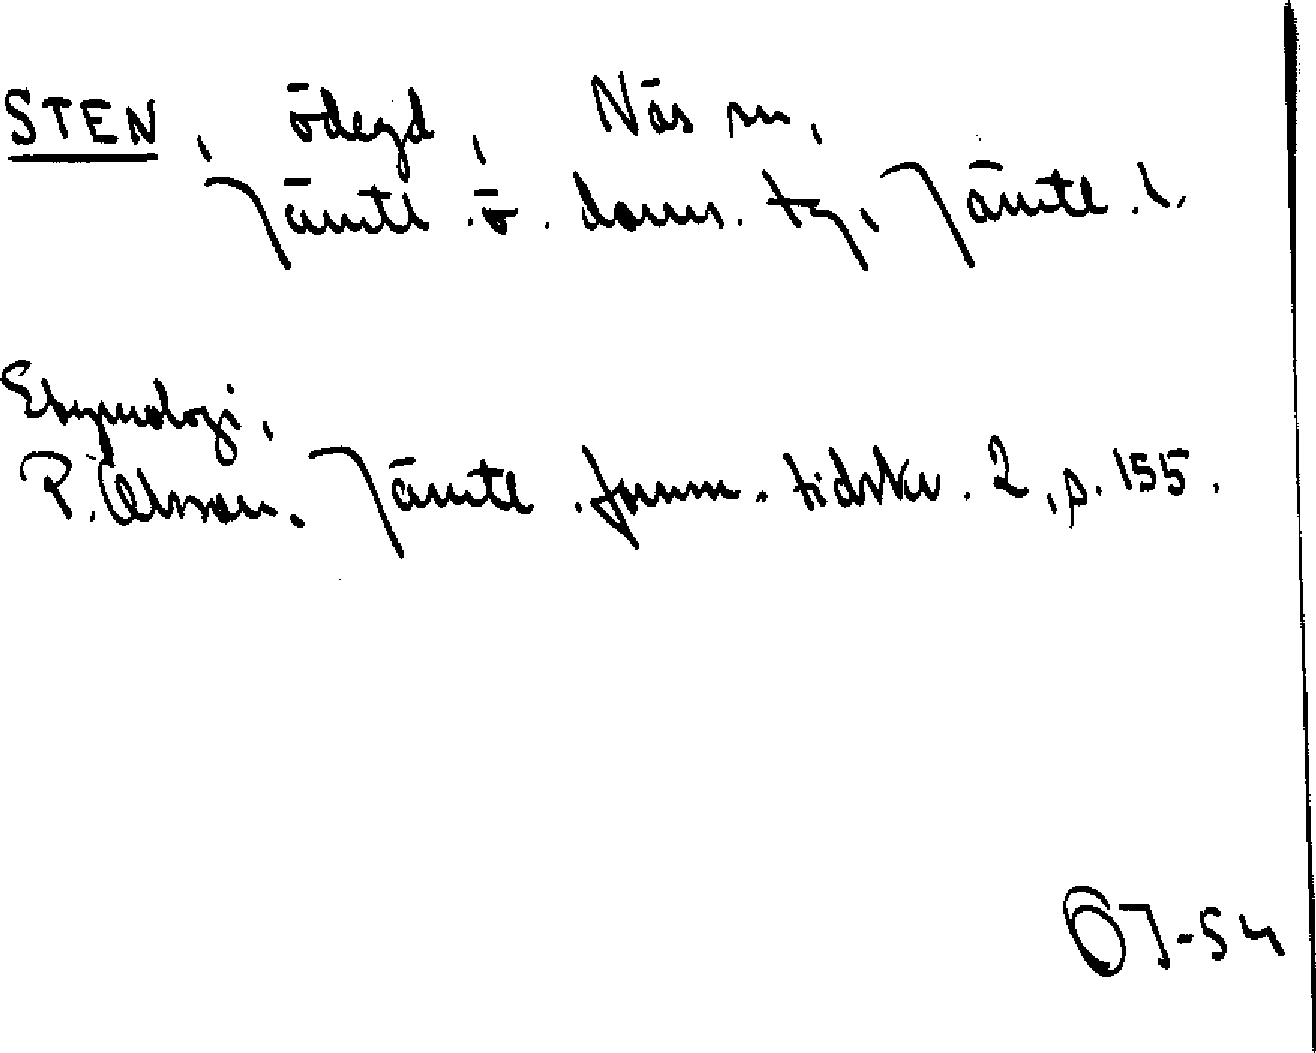 STEN, ödegd, Näs sn,
Jämtl. ö. doms. tg, Jämtl. l.
Etymologi,
P. Olsson. Jämtl. fornm. tidskr. 2, p. 155.